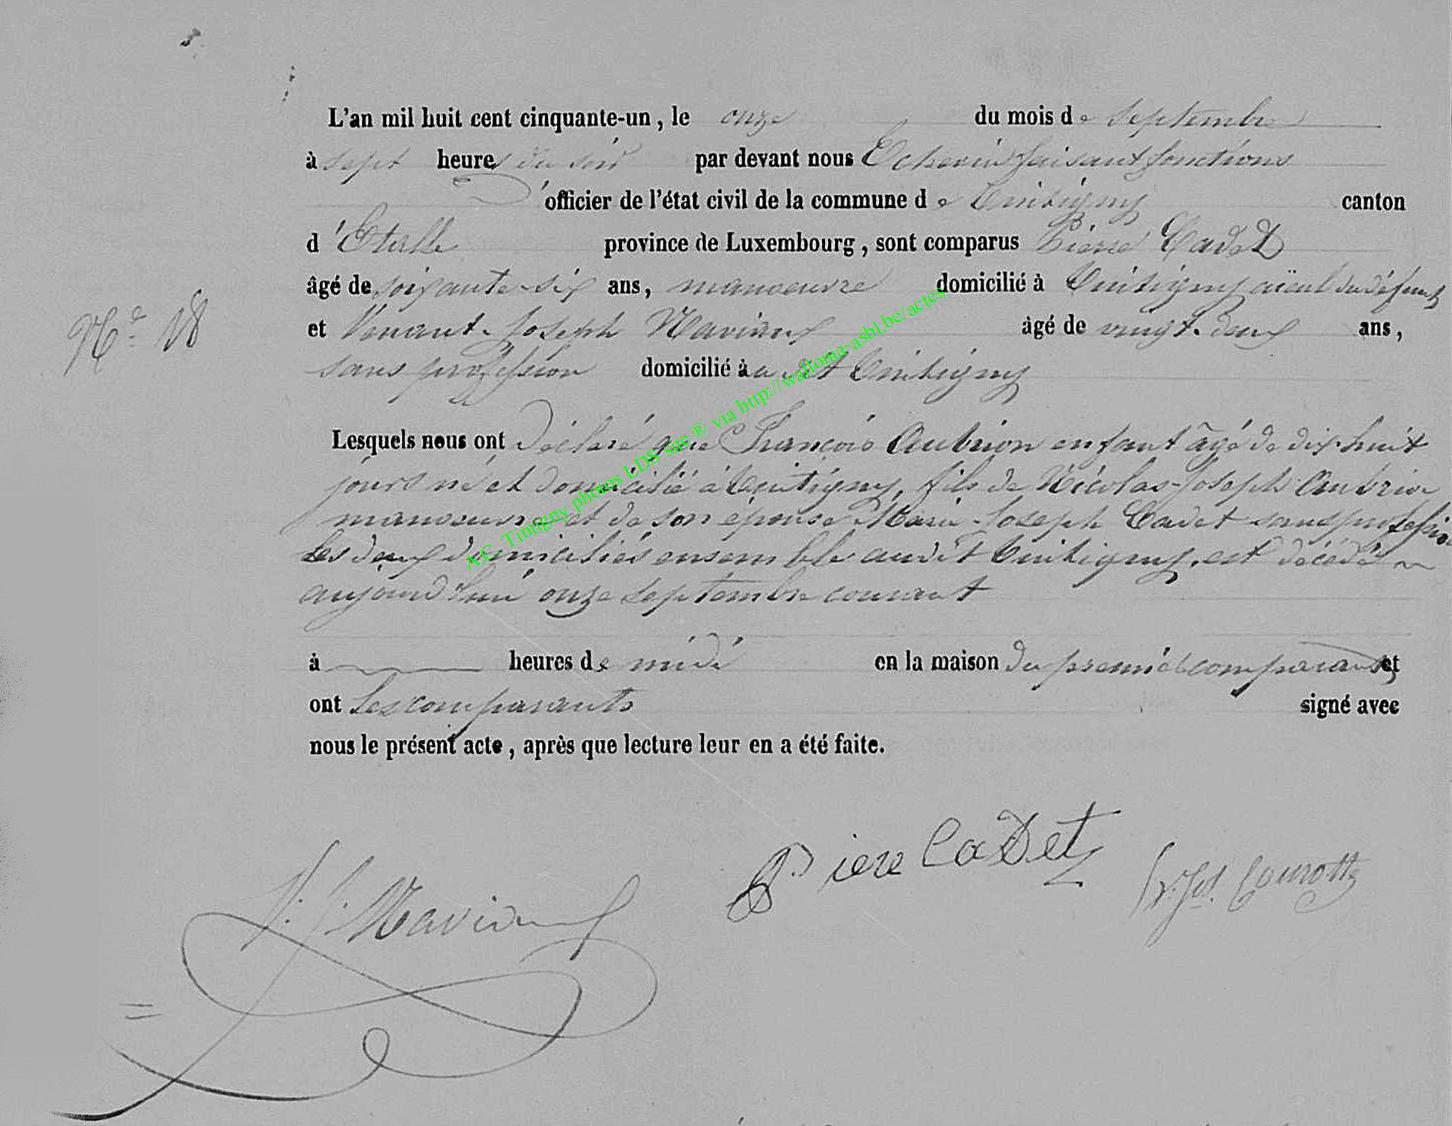 L'an mil huit cent cinquante-un, le onze du mois de Septembre
à sept heures du soir par devant nous Echevin faisant fonctions
d'officier de l'état civil de la commune de Tintigny canton
d'Etalle province de Luxembourg, sont comparus Pierre Cadet
âgé de soixante-six ans, manoeuvre domicilié à Tintigny aïeul du défunt
N° 18
et Venant-Joseph Maviaux âgé de vingt-deux ans,
sans profession domicilié à au dit Tintigny
Lesquels nous ont déclaré que François Aubrion enfant âgé de dix-huit
jours né et domicilié à Tintigny, fils de Nicolas-Joseph Aubrion
manoeuvre et de son épouse Marie Joseph Cadet sans profession
les deux domiciliés ensemble audit Tintigny, est décédé
aujourd'hui onze septembre courant
à heures de midi en la maison du premier comparant et
ont les comparants signé avec
nous le présent acte, après que lecture leur en a été faite.
A.C. Tintigny photos LDS site ® via http://wallonia-asbl.be/actes
V. J. Maviaux
Piere CaDet